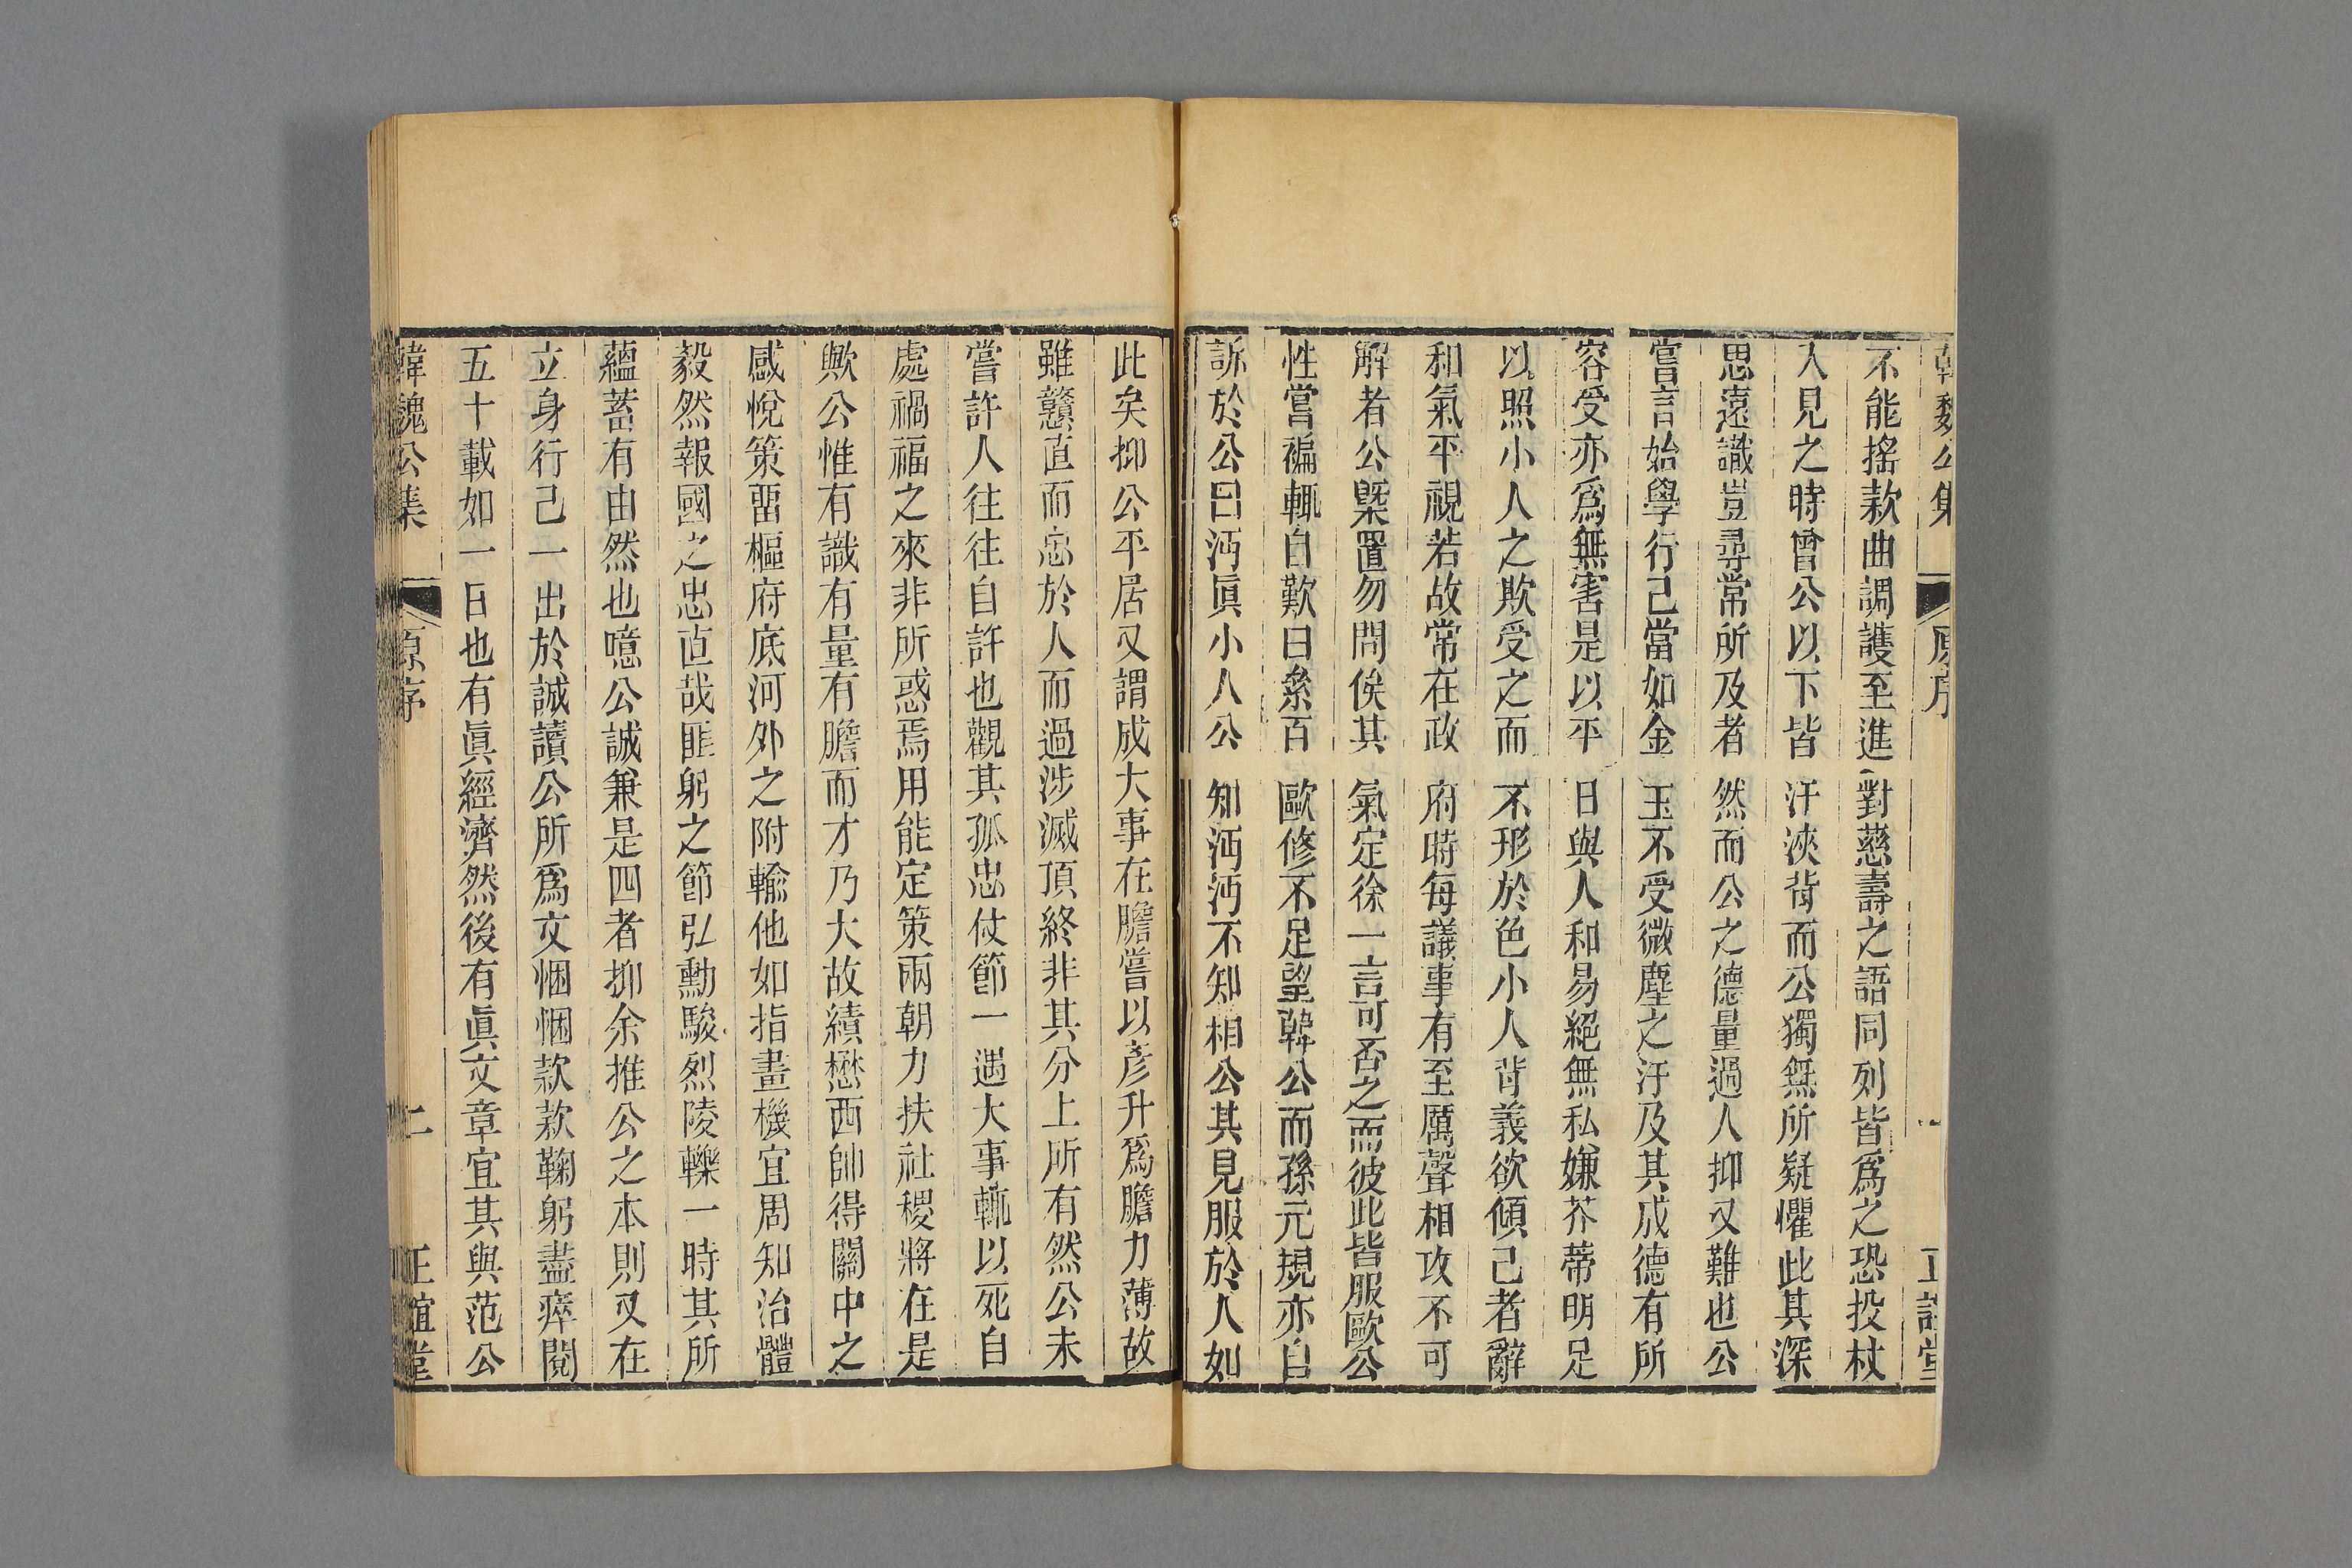 韓魏公集 原序 一 正誼堂
不能搖款曲調護至進對慈壽之語同列皆爲之恐投杖
入見之時曾公以下皆汗浹背而公獨無所疑懼此其深
思遠識豈尋常所及者然而公之德量過人抑又難也公
嘗言始學行己當如金玉不受微塵之汙及其成德有所
容受亦爲無害是以平日與人和易絕無私嫌芥蒂明足
以照小人之欺受之而不形於色小人背義欲傾己者辭
和氣平視若故常在政府時每議事有至厲聲相攻不可
解者公槩置勿問俟其氣定徐一言可否之而彼此皆服歐公
性嘗褊輒自歎曰絫百歐修不足望韓公而孫元規亦自
訴於公曰沔眞小人公知沔沔不知相公其見服於人如
此矣抑公平居又謂成大事在膽嘗以彥升爲膽力薄故
雖戇直而忠於人而過涉滅頂終非其分上所有然公未
嘗許人往往自許也觀其孤忠仗節一遇大事輒以死自
處禍福之來非所惑焉用能定策兩朝力扶社稷將在是
歟公惟有識有量有膽而才乃大故績懋西帥得關中之
感悅策畱樞府底河外之附輸他如指畫機宜周知治體
毅然報國之忠直哉匪躬之節弘勳駿烈陵轢一時其所
蘊蓄有由然也噫公誠兼是四者抑余推公之本則又在
立身行己一出於誠讀公所爲文悃悃款款鞠躬盡瘁閱
五十載如一日也有眞經濟然後有眞文章宜其與范公
韓魏公集 原序 二 正誼堂